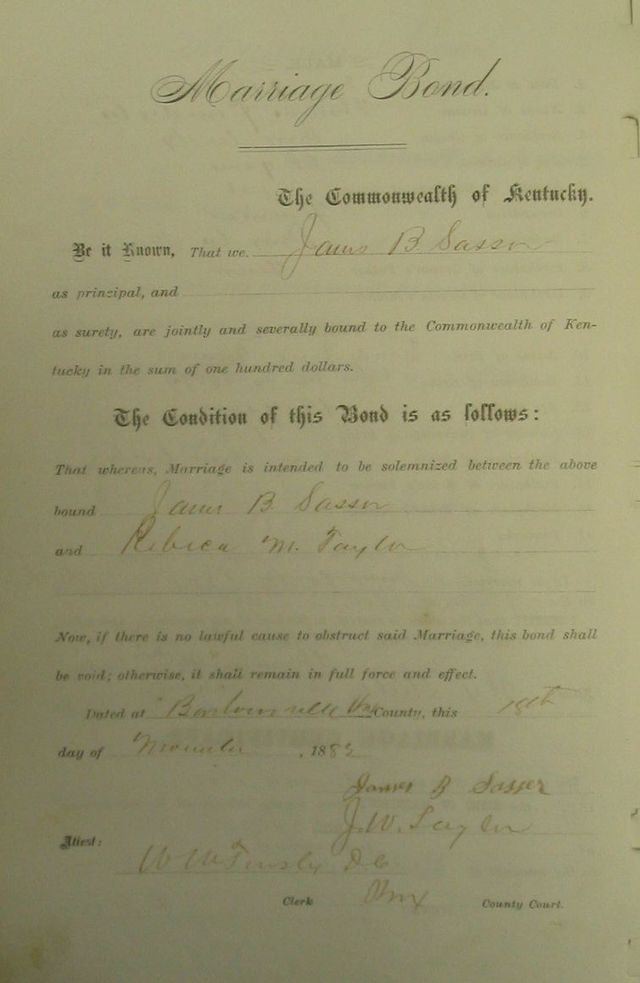 Marriage Bond.
The Commonwealth of Kentucky.
Be it Known, That we James B Sasser
as principal, and
as surety, are jointly and severally bound to the Commonwealth of Ken-
tucky in the sum of one hundred dollars.
The Condition of this Bond is as follows:
That whereas, Marriage is intended to be solemnized between the above
bound James B. Sasser
and Rebeca M. Taylor
Now, if there is no lawful cause to obstruct said Marriage, this bond shall
be void; otherwise, it shall remain in full force and effect.
Dated at Barbourville County, this 18th
day of November, 1882
James B Sasser
J. W. Taylor
Attest:
D C
Clerk Knox County Court.